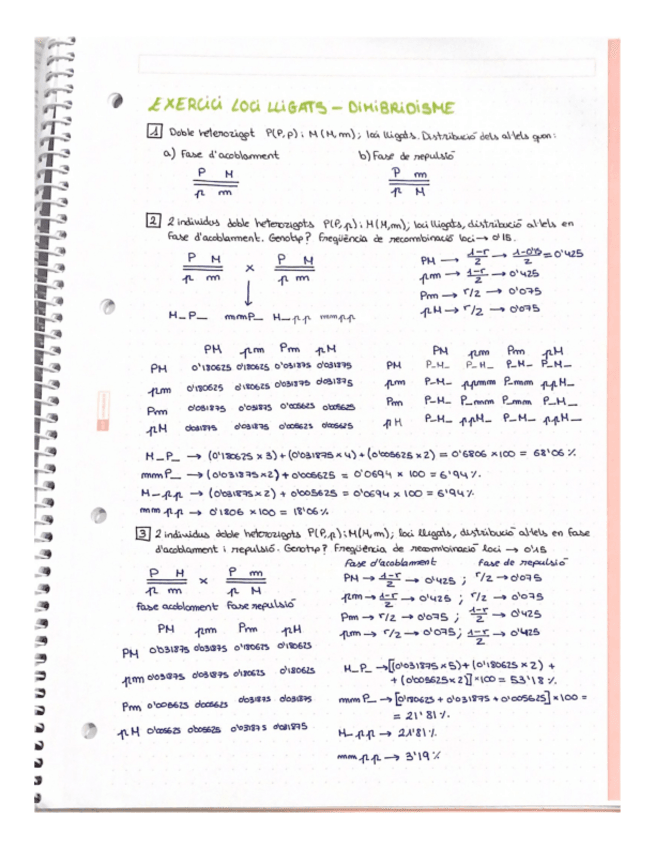 EXERCICI LOCI LLIGATS - DIHIBRIDISME
1 Doble heterozigot P(P,p) i M(M,m); loci lligats. Distribució dels al·lels quan:
a) Fase d'acoblament b) Fase de repulsió
P M P m
p m p M
2 2 individus doble heterozigots P(P,p) i M(M,m); loci lligats, distribució al·lels en
fase d'acoblament. Genotip? Freqüència de recombinació loci → 0'15.
P M × P M
p m p m
PM → 1-r/2 → 1-0'15/2 = 0'425
pm → 1-r/2 → 0'425
Pm → r/2 → 0'075
pM → r/2 → 0'075
M_P_ mmP_ M_pp mmpp
PM pm Pm pM
PM 0'180625 0'180625 0'031875 0'031875
pm 0'180625 0'180625 0'031875 0'031875
Pm 0'031875 0'031875 0'005625 0'005625
pM 0'031875 0'031875 0'005625 0'005625
PM pm Pm pM
PM P_M_ P_M_ P_M_ P_M_
pm P_M_ ppmm P_mm ppM_
Pm P_M_ P_mm P_mm P_M_
pM P_M_ ppM_ P_M_ ppM_
M_P_ → (0'180625 × 3) + (0'031875 × 4) + (0'005625 × 2) = 0'6806 × 100 = 68'06 %
mmP_ → (0'031875 × 2) + 0'005625 = 0'0694 × 100 = 6'94 %.
M_pp → (0'031875 × 2) + 0'005625 = 0'0694 × 100 = 6'94 %.
mmpp → 0'1806 × 100 = 18'06 %
3 2 individus doble heterozigots P(P,p) i M(M,m); loci lligats, distribució al·lels en fase
d'acoblament i repulsió. Genotip? Freqüència de recombinació loci → 0'15
P M × P m
p m p M
fase acoblament fase repulsió
Fase d'acoblament Fase de repulsió
PM → 1-r/2 → 0'425 ; r/2 → 0'075
pm → 1-r/2 → 0'425 ; r/2 → 0'075
Pm → r/2 → 0'075 ; 1-r/2 → 0'425
pm → r/2 → 0'075; 1-r/2 → 0'425
PM pm Pm pM
PM 0'031875 0'031875 0'180625 0'180625
pm 0'031875 0'031875 0'180625 0'180625
Pm 0'005625 0'005625 0'031875 0'031875
pM 0'005625 0'005625 0'031875 0'031875
M_P_ → [(0'031875 × 5) + (0'180625 × 2) +
+ (0'005625 × 2)] × 100 = 53'18 %.
mmP_ → [0'180625 + 0'031875 + 0'005625] × 100 =
= 21'81 %.
M_pp → 21'81 %
mmpp → 3'19 %